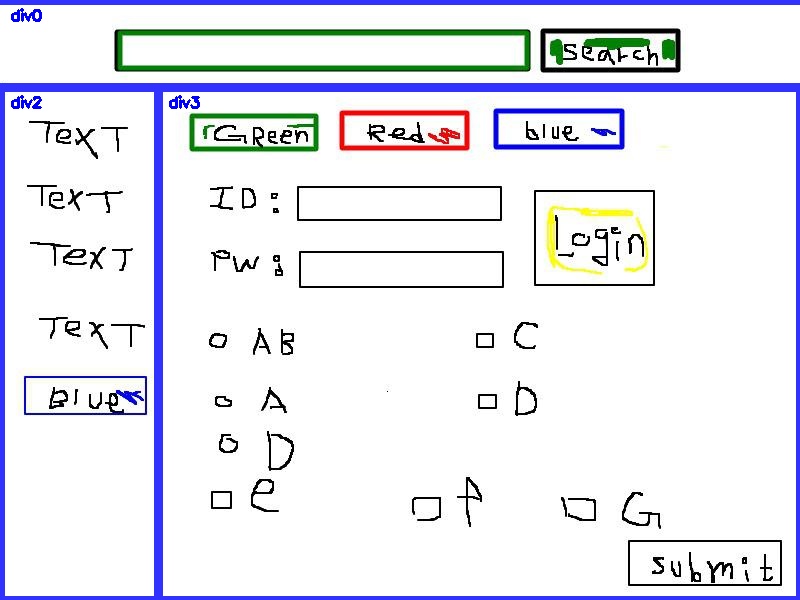 div0
Search
div2
TexT
TexT
TexT
TexT
Blue
div3
GReen
Red
blue
ID:
PW:
Login
AB
C
A
D
D
e
f
G
submit